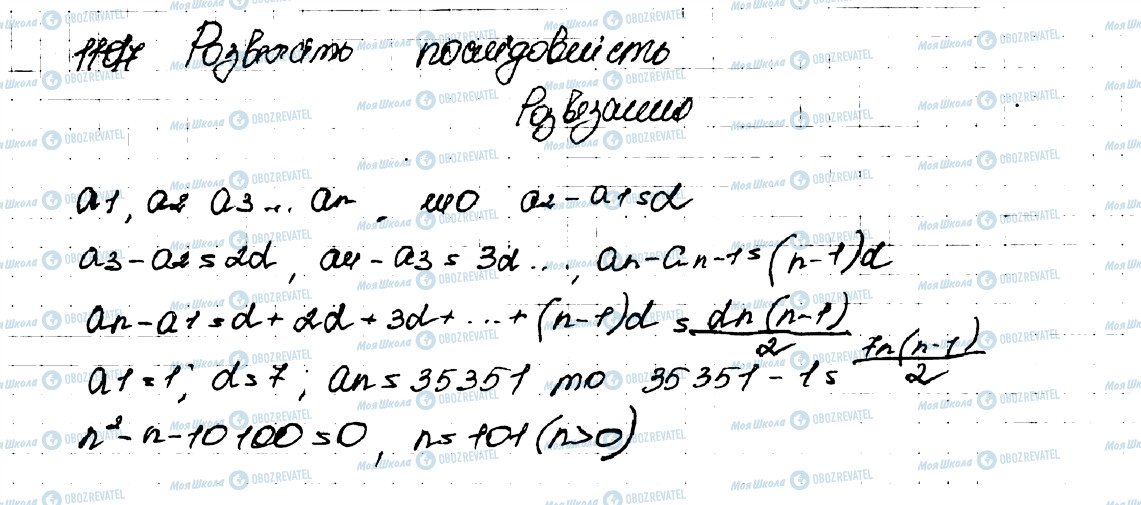 1107 Розвʼязать послідовність
Розвʼязання
a1, a2 a3... an. що a2 - a1 = d
a3 - a2 = 2d, a4 - a3 = 3d ..., an - an-1 = (n-1)d
an - a1 = d + 2d + 3d + ... + (n-1)d = dn(n-1)/2
a1 = 1; d = 7; an = 35351 то 35351 - 1 = 7n(n-1)/2
n² - n - 10100 = 0, n = 101 (n>0)
Моя Школа OBOZREVATEL